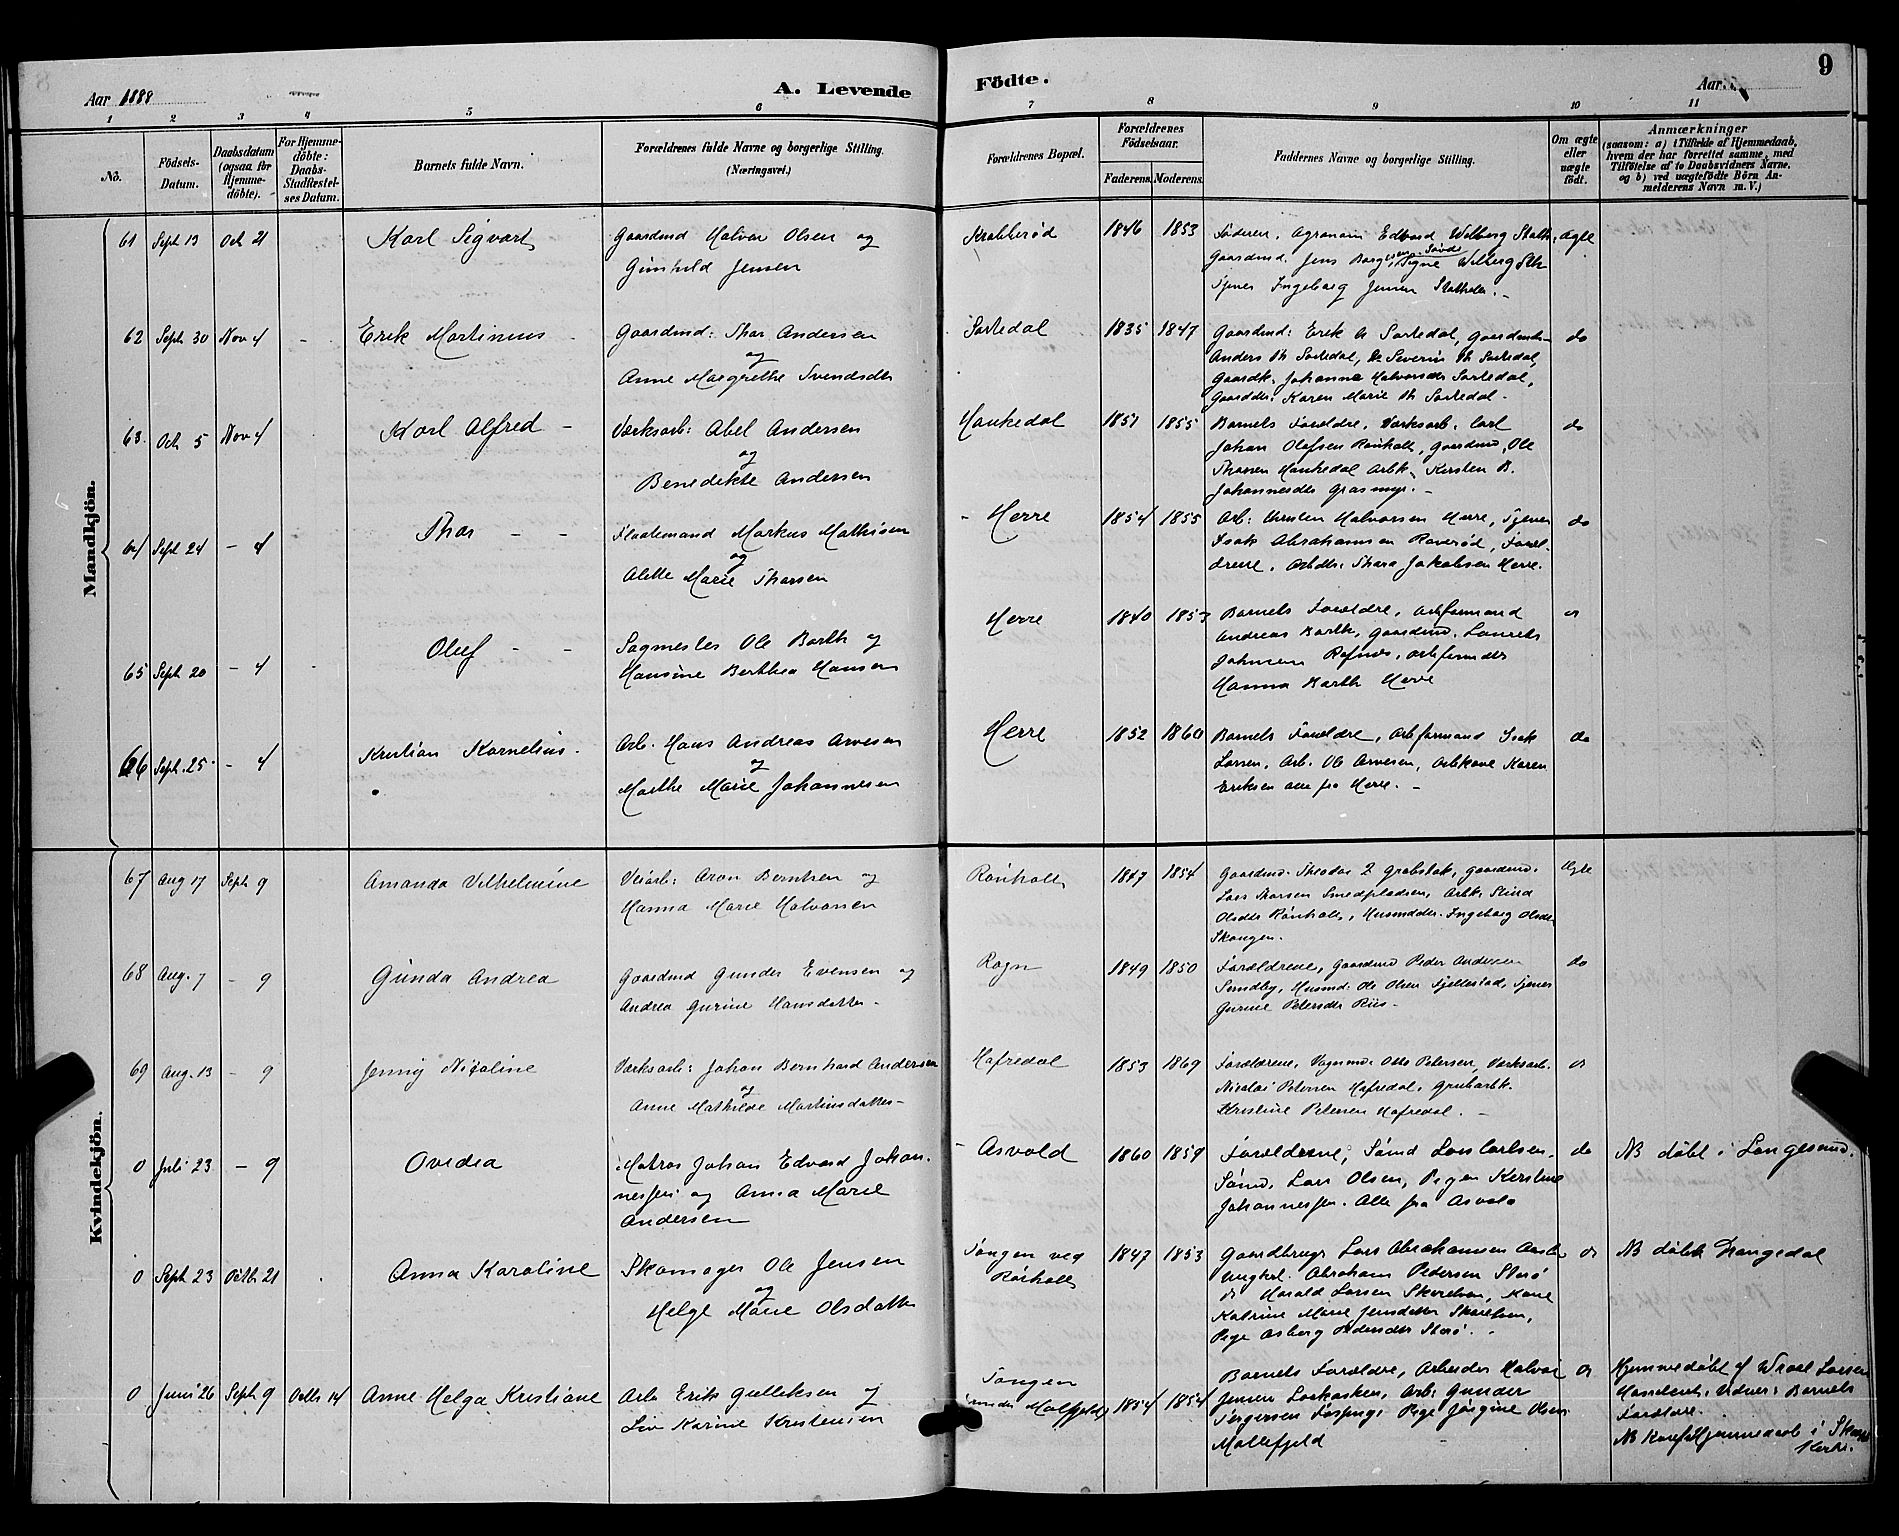 Aar 1888
A. Levende
Födte.
Aar
9
1 2 3 4 5 6 7 8 9 10 11
No.
Födsels-Datum.
Daabsdatum (ogsaa for Hjemme-döbte).
For Hjemme-döbte: Daabs-Stadfæstel-ses Datum.
Barnets fulde Navn.
Forældrenes fulde Navne og borgerlige Stilling.
(Næringsvei.)
Forældrenes Bopæl.
Forældrenes Födselsaar.
Faderens. Moderens.
Faddernes Navne og borgerlige Stilling.
Om ægte eller uægte födt.
Anmærkninger
(saasom: a) i Tilfælde af Hjemmedaab, hvem der har forrettet samme, med Tilföielse af to Daabsvidners Navne, og b) ved uægtefödte Börn An-melderens Navn m. V.)
Mandkjön.
61 Sept 13 Oct 21 Karl Sigvart
Gaardmd Halvor Olsen og
Gunhild Jensen
Krabberød 1846 1853
Faderen, Agronom Edvard Wilberg
Gaardmd. Jens Signe Wilberg
Tjener Ingeborg Jensen Stathelle.
Ægte
62 Sept 30 Nov 4 Erik Martinius
Gaardmd: Thor Andersen
og
Anne Margrethe Svendsdtr
Sortedal 1835 1847
Gaardmd: Erik A Sortedal, Gaardmds-
Anders Th Sortedal, Severin Th Sortedal,
Gaardk. Johanne Halvorsdtr Sortedal,
Gaarddtr. Karen Marie Th Sortedal.
do
63. Oct 5 Nov 4 Karl Alfred
Værksarb: Abel Andersen
og
Benedikte Andersen
Hankedal 1851 1855
Barnets Forældre, Værksarb. Carl
Johan Olafsen Rönholt, Gaardmd, Ole
Thorsen Hankedal Arbk. Kirsten B.
Johannesdtr Grasmyr.
do
64 Sept 24 – 4 Thor
Flaatemand Markus Mathisen
og
Alette Marie Thorsen
Herre 1854 1855
Arb: Kirsten Halvorsen Herre, Tjener
Isak Abrahamsen Raverød, Foræl-
drene, Arbdtr. Thora Jakobsen Herre.
do
65 Sept 20 – 4 Oluf
Sagmester Ole Barth og
Hansine Berthea Hansen
Herre 1840 1853
Barnets Forældre, Arbformand
Andreas Barth, Gaardmd. Laurits
Johnsen Rafnes, Arbformdtr
Hanna Barth Herre
66 Sept. 25 – 4 Kristian Kornelius.
Arb. Hans Andreas Arvesen
og
Marthe Marie Johannesen
Herre 1852 1860
Barnets Forældre, Arbformand Isak
Larsen, Arb. Ole Arvesen, Arbkone Karen
Eriksen alle fra Herre.
do
Kvindekjön.
67 Aug 17 Sept 9 Amanda Vilhelmine
Veiarb: Aron Berntsen og
Hanna Marie Halvorsen
Rönholt 1847 1854
Gaardmd. Theodor Grobstok, Gaardmd.
Lars Thorsen Smedpladsen, Arbk. Stina
Olsdtr Rönholt, Husmdtr. Ingeborg Olsdtr
Skougen.
Ægte
68 Aug. 7 – 9 Gunda Andrea
Gaardmd Gunder Evensen og
Andrea Gurine Hansdatter
Rogn 1849 1850
Forældrene, Gaardmd Peder Andersen
Sundby, Husmd. Ole Olsen Fjellestad, Tjener
Gurine Petersdtr Riis
do
69 Aug. 13 – 9 Jenny Nicoline
Værksarb: Johan Bernhard Andersen
og
Anne Mathilde Martinsdatter
Hafredal 1853 1869
Forældrene, Otto Petersen, Værksarb.
Nicolai Petersen Hafredal, Grubarbk.
Kristine Petersen Hafredal.
0 Juli 23 – 9 Ovedia
Matros Johan Edvard Johan-
nessen og Anna Marie
Andersen
Asvold 1860 1859
Forældrene, Sömd Lars Carlsen,
Sömd. Lars Olsen, Pigen Kerstine
Johannessen. Alle fra Asvold
do
NB döbt i Langesund.
0 Sept 23 Octb 21 Anna Karoline
Skomager Ole Jensen
og
Helge Marie Olsdatter
Tangen ved
Rönholt
1847 1853
Gaardbruger Lars Abrahamsen
Ungkrl. Abraham Pedersen Storö
Harald Larsen Kone
Katrine Marie Jensdatter
Pige Asberg Pedersdtr Storö.
NB döbt Drangedal
0 Juni 26 Sept 9 Octb 14 Anne Helga Kristiane
Arb Erik Gulleksen og
Liv Karine Kristensen
Tangen
1854 1854
Barnets Forældre, Arbeider Halvor
Jensen Arb. Gunder
Jörgensen Pige Jörgine Olsen
Mollefjeld
Hjemmedöbt af Larsen
Barnets
Forældre.
NB Hjemmedaab i
Kirke.